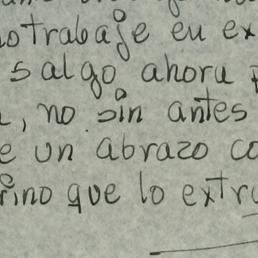 otrabaje en ex
salgo ahora
, no sin antes
e un abrazo co
rino que lo extra